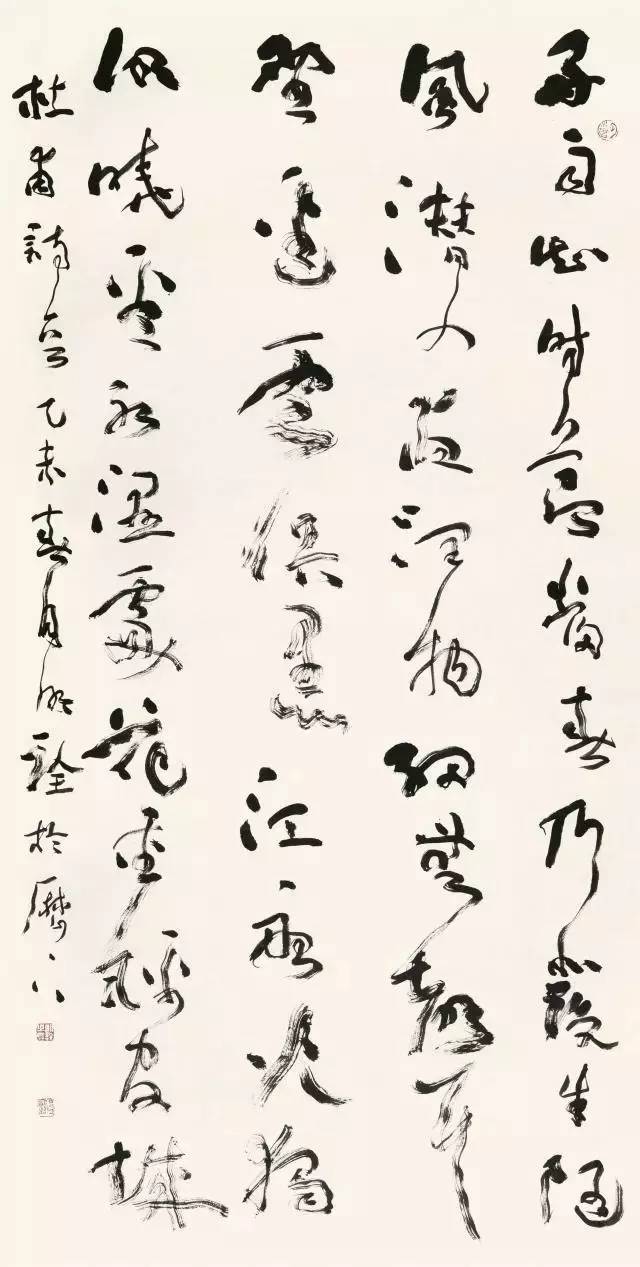 好雨知時節當春乃發生隨
風潛入夜潤物細無聲
野徑雲俱黑江船火獨
明曉看紅濕處花重錦官城
杜甫詩 乙未春月明詮於歷下